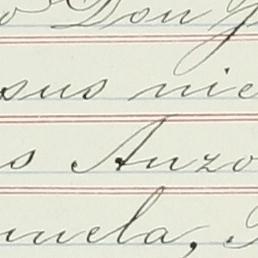 o Don J
sus nie
s Anzo
uela,